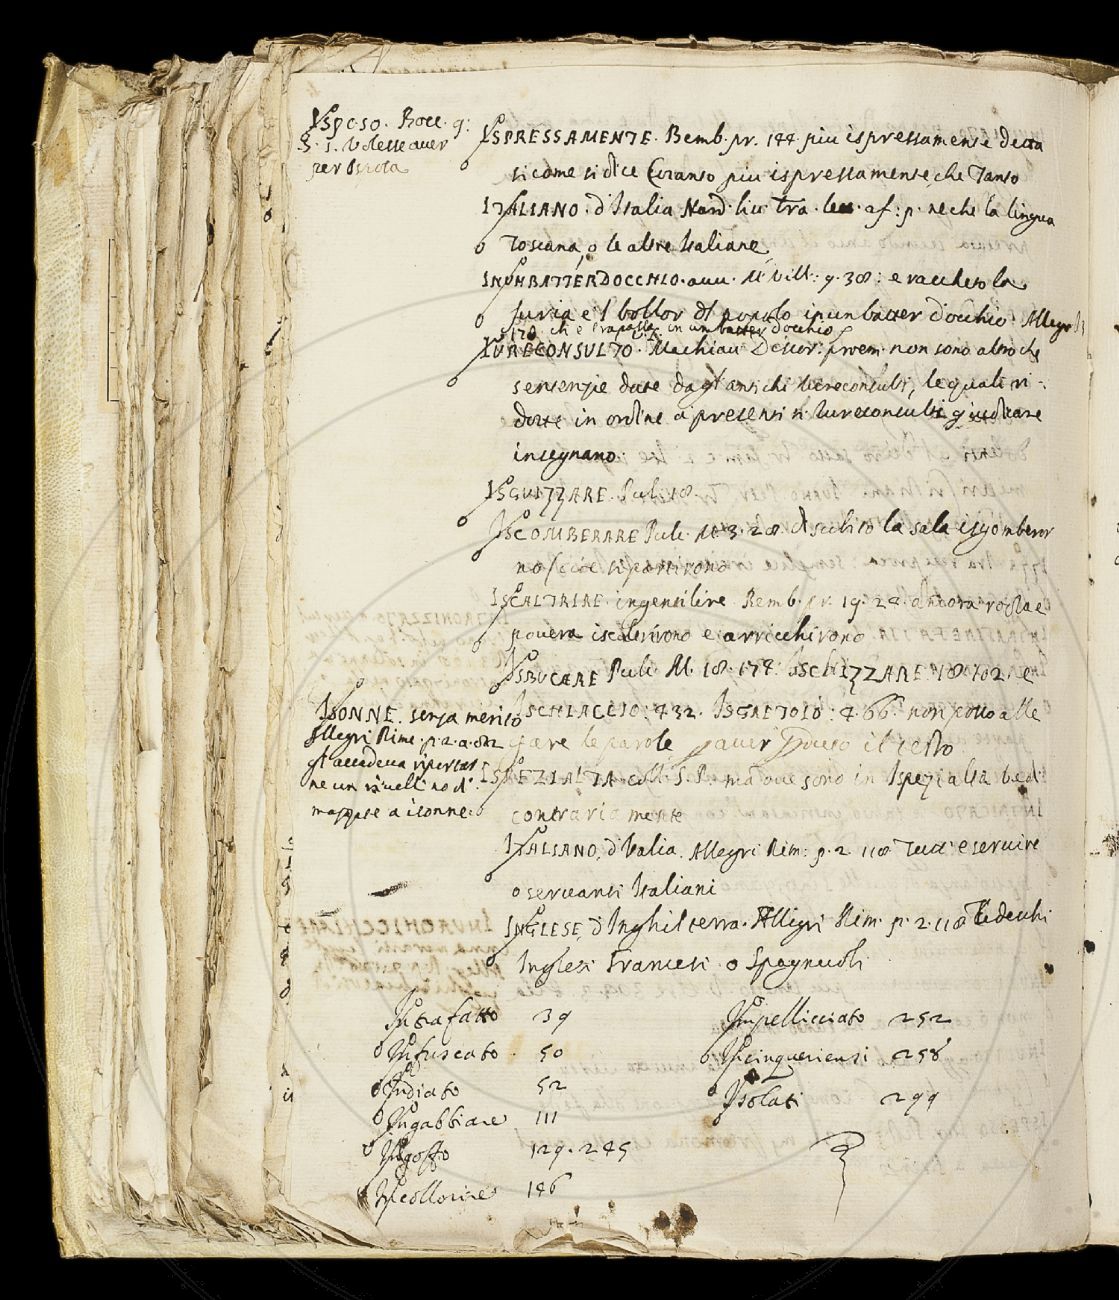 Isposo. Bocc. g:
S. 1. Volesse aver
per Isposa
ISPRESSAMENTE. Bemb. pr. 144. piu ispressamente detta
si come si dice Cotanto piu ispressamente, che Tanto
ITALIANO. d'Italia Nard. liv. tra. af: p. ne che la lingua
Toscana, o le altre Italiane
INUNBATTERDOCCHIO. avv. M. Vill: 9. 38: e racchetò la
furia e 'l bollor del popolo in un batter d'occhio. Allegr.
170. ch'è in un batter d'occhio
IURECONSULTO. Machiav. Discor. proem. non sono altro che
sentenzie date dagl'antichi Iureconsulti, le quali ri-
dotte in ordine a' presenti ri Iureconsulti giudicare
insegnano.
ISGUIZZARE. Pulci 18.
ISCOMBERARE Pulc. M. 3. 28. subito la sala isgomberor
no, cioè si partirono
ISCALTRIRE. ingentilire. Bemb. pr. 19. 24. ancora rozza e
povera iscaltrirono e arricchirono
ISBUCARE Pulc. M. 18. 174. ISCHIZZARE. 18. 702.
ISCHIACCIO: 432. : 4. 66. non posso alle
gare le parole p aver il testo
ISONNE. senza merito
Allegri Rime. p. 2. a. 82
gl'accadeva riportar
ne un rivellino di
mazzate a isonne.
ISPEZIALTA coll. S. P. ma ove sono in Ispezialta bedi
contrariamente
ITALIANO, d'Italia. Allegri Rim: p. 2. 118 e servire
o servansi Italiani
INGLESE, d'Inghilterra. Allegri Rim. p. 2. 118 Tedeschi
Inglesi Francesi. o Spagnuoli
Intrafatto 39
Infuscato. 50
Indiato 52
Ingabbiare 111
Ingoffo 129. 245
Incollorire 146
Impelliciato 252
Incinqueriensi 258
Isolati 299